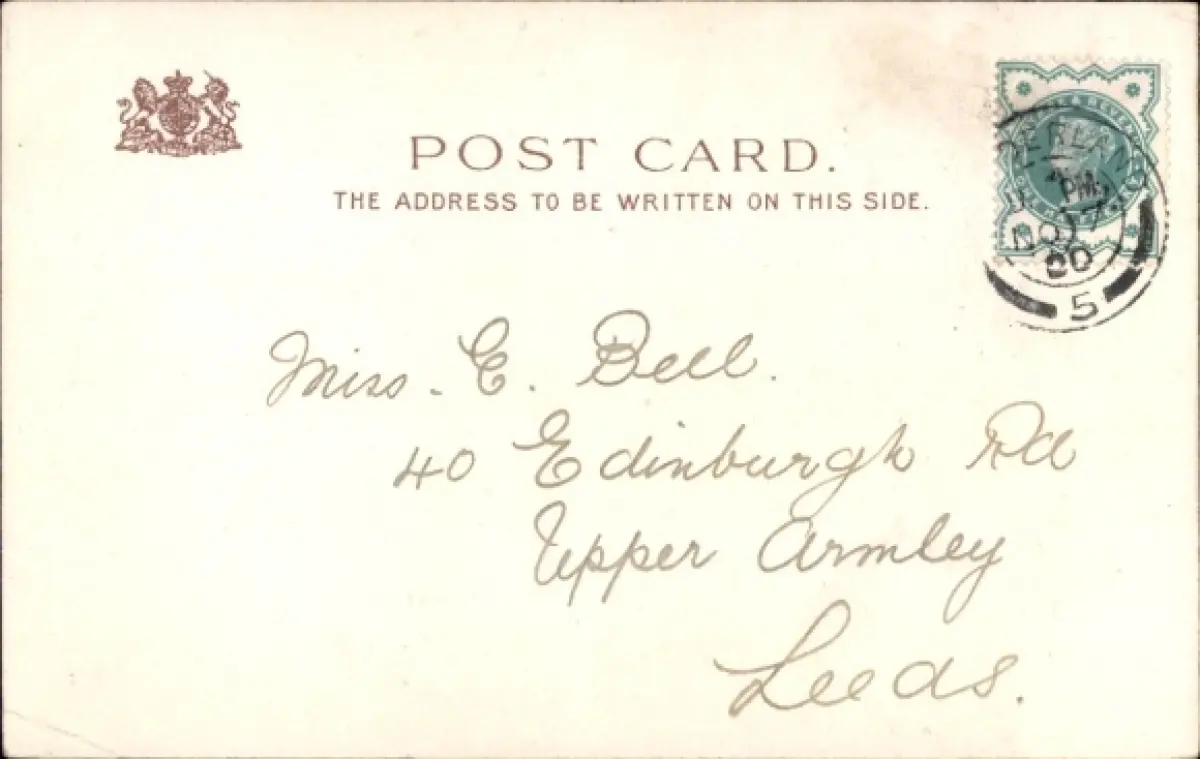 POST CARD.
THE ADDRESS TO BE WRITTEN ON THIS SIDE.
PM
NO 17
00
5
Miss. E. Bell.
40 Edinburgh Rd
Upper Armley
Leeds.